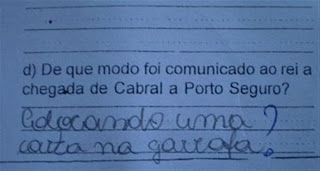 d) De que modo foi comunicado ao rei a
chegada de Cabral a Porto Seguro?
Colocando uma ?
carta na garrafa.